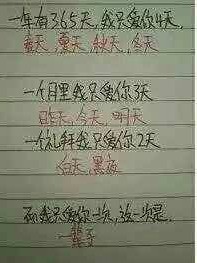 一年有365天,我只爱你4天,
春天,夏天,秋天,冬天
一个月里我只爱你3天
昨天,今天,明天
一个礼拜我只爱你2天
白天,黑夜
而我只爱你一次,这一次是,
一辈子